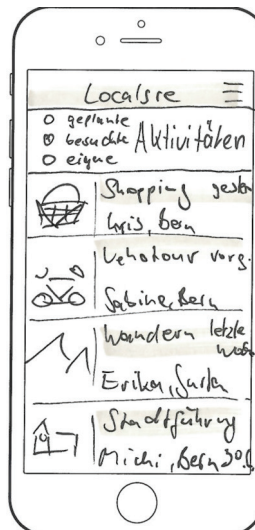 Localsre
geplante
besuchte Aktivitäten
eigene
Shopping gestern
Iris, Bern
Velotour vorg.
Sabine, Bern
Wandern letzte
Woche
Erika,
Stadtführung
Michi, Bern 30.